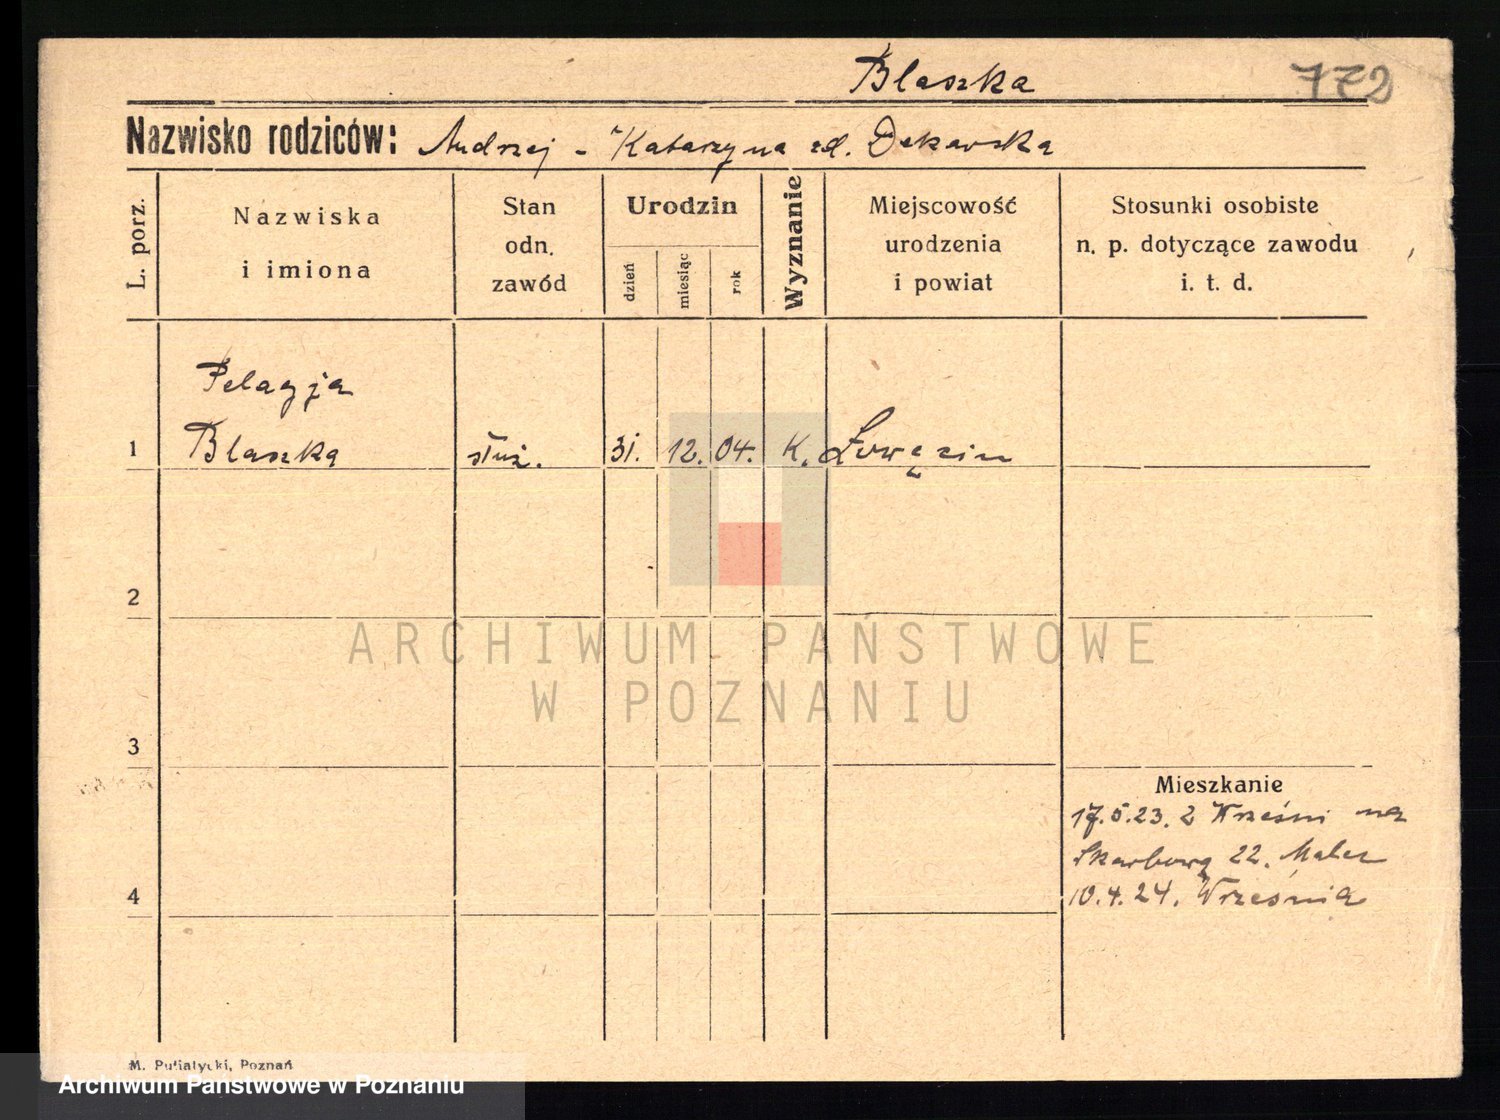 Blaszka
772
Nazwisko rodziców: Andrzej - Katarzyna zd. Dekarska
L. porz.
Nazwiska
i imiona
Stan
odn.
zawód
Urodzin
dzień
miesiąc
rok
Wyznanie
Miejscowość
urodzenia
i powiat
Stosunki osobiste
n. p. dotyczące zawodu
i. t. d.
Pelagja
1 Blaszka służ. 31. 12. 04. K. Łowęcin
2
ARCHIWUM PAŃSTWOWE
W POZNANIU
3
Mieszkanie
17.5.23. z Wrześni na
Skarbową 22.
4 10.4.24. Września
M. Putiatycki, Poznań
Archiwum Państwowe w Poznaniu